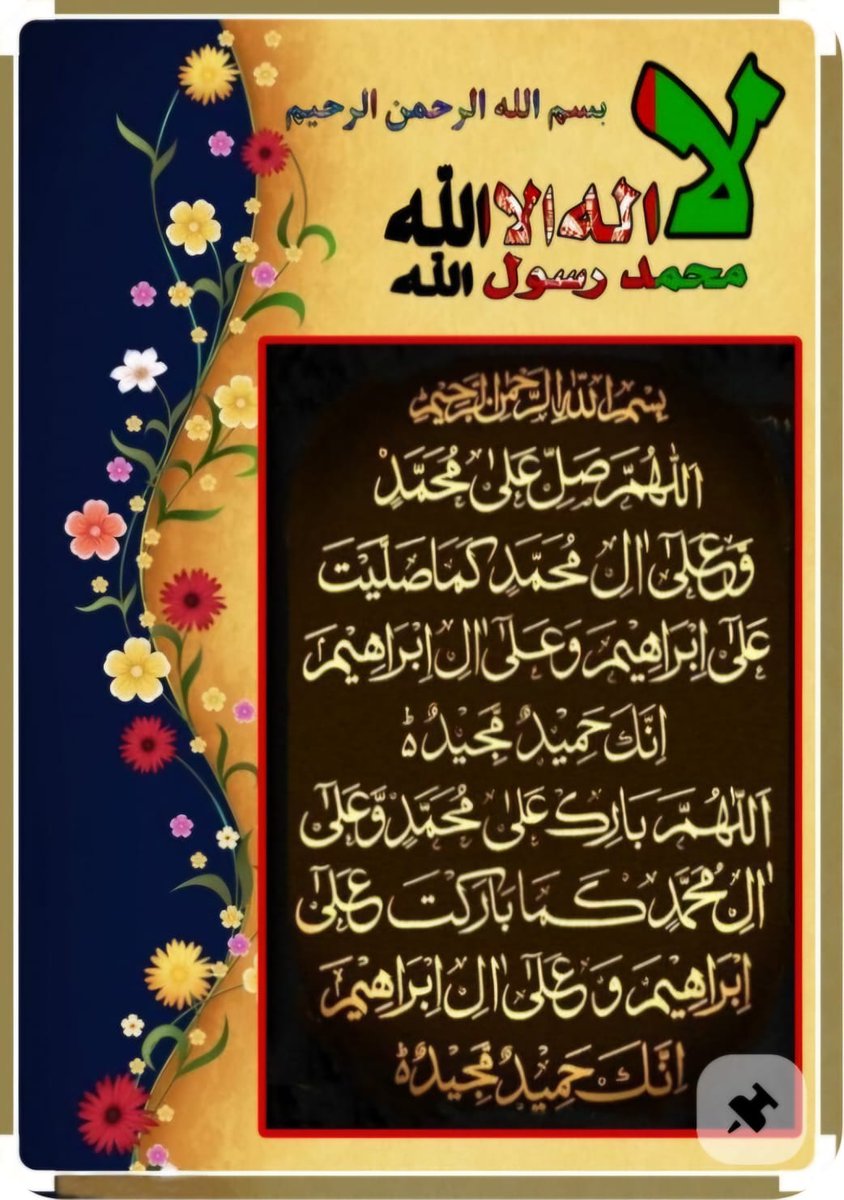 بسم الله الرحمن الرحيم
لا اله الا الله
محمد رسول الله
بِسْمِ اللهِ الرَّحْمٰنِ الرَّحِيْمِ
اَللّٰهُمَّ صَلِّ عَلٰى مُحَمَّدٍ
وَّعَلٰٓى اٰلِ مُحَمَّدٍ كَمَا صَلَّيْتَ
عَلٰٓى اِبْرَاهِيْمَ وَعَلٰٓى اٰلِ اِبْرَاهِيْمَ
اِنَّكَ حَمِيْدٌ مَّجِيْدٌ ؕ
اَللّٰهُمَّ بَارِكْ عَلٰى مُحَمَّدٍ وَّعَلٰٓى
اٰلِ مُحَمَّدٍ كَمَا بَارَكْتَ عَلٰٓى
اِبْرَاهِيْمَ وَعَلٰٓى اٰلِ اِبْرَاهِيْمَ
اِنَّكَ حَمِيْدٌ مَّجِيْدٌ ؕ